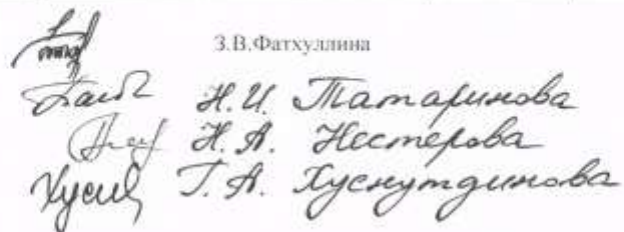 З.В.Фатхуллина
Н.И. Татаринова
Н.А. Нестерова
Г.А. Хуснутдинова